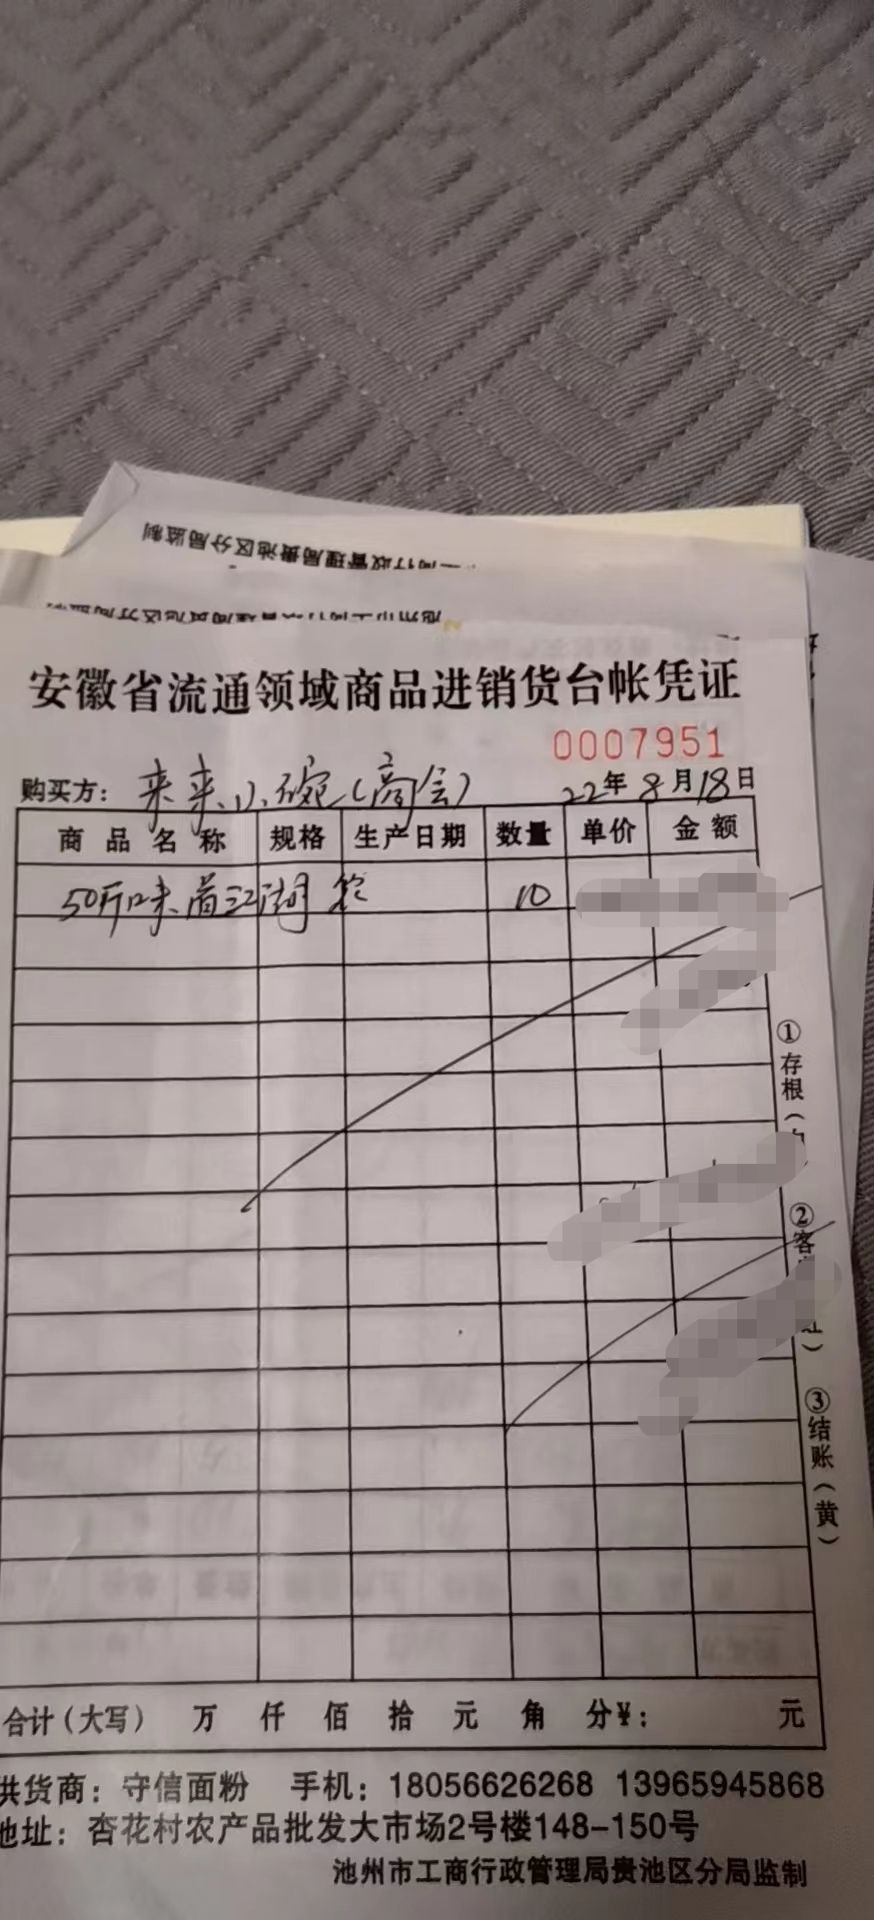 局监制
工商行政管理局贵池区分局监制
安徽省流通领域商品进销货台帐凭证
0007951
购买方：来来小碗(商会) 22年8月18日
商品名称 规格 生产日期 数量 单价 金额
50斤味首江湖 10
①存根（
②客
③结账（黄）
合计(大写) 万 仟 佰 拾 元 角 分¥： 元
供货商：守信面粉 手机：18056626268 13965945868
地址：杏花村农产品批发大市场2号楼148-150号
池州市工商行政管理局贵池区分局监制